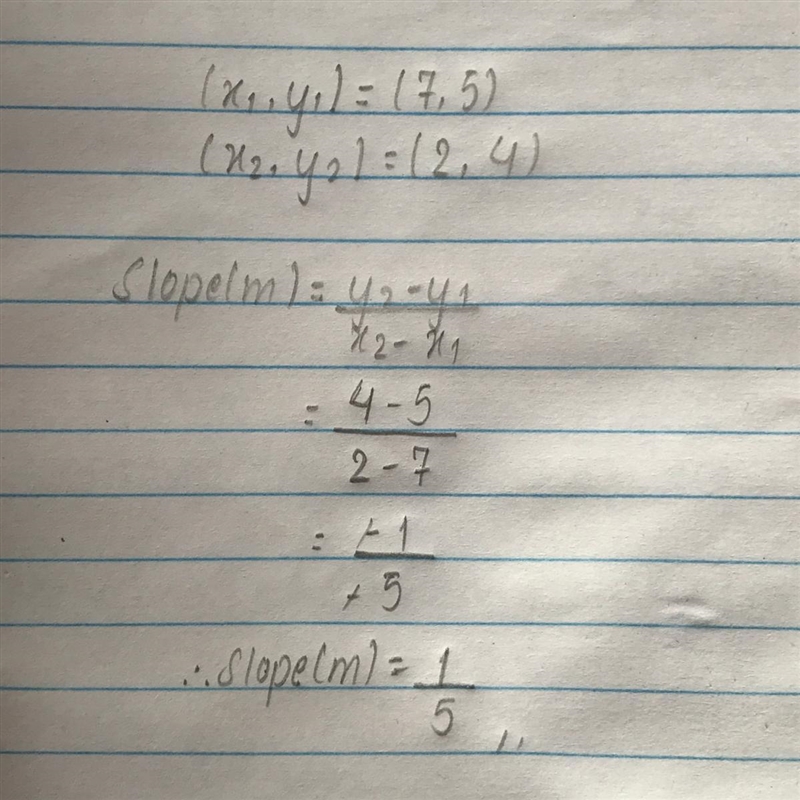 (x₁, y₁) = (7, 5)
(x₂, y₂) = (2, 4)
Slope(m) = y₂ - y₁
x₂ - x₁
= 4 - 5
2 - 7
= -1
-5
∴ Slope(m) = 1
5 ,,